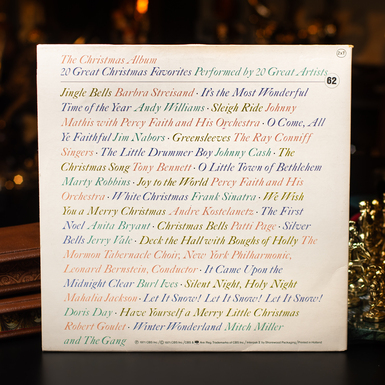 The Christmas Album
20 Great Christmas Favorites Performed by 20 Great Artists
62
Jingle Bells Barbra Streisand · It's the Most Wonderful
Time of the Year Andy Williams · Sleigh Ride Johnny
Mathis with Percy Faith and His Orchestra · O Come, All
Ye Faithful Jim Nabors · Greensleeves The Ray Conniff
Singers · The Little Drummer Boy Johnny Cash · The
Christmas Song Tony Bennett · O Little Town of Bethlehem
Marty Robbins · Joy to the World Percy Faith and His
Orchestra · White Christmas Frank Sinatra · We Wish
You a Merry Christmas Andre Kostelanetz · The First
Noel Anita Bryant · Christmas Bells Patti Page · Silver
Bells Jerry Vale · Deck the Hall with Boughs of Holly The
Mormon Tabernacle Choir, New York Philharmonic,
Leonard Bernstein, Conductor · It Came Upon the
Midnight Clear Burl Ives · Silent Night, Holy Night
Mahalia Jackson · Let It Snow! Let It Snow! Let It Snow!
Doris Day · Have Yourself a Merry Little Christmas
Robert Goulet · Winter Wonderland Mitch Miller
and The Gang